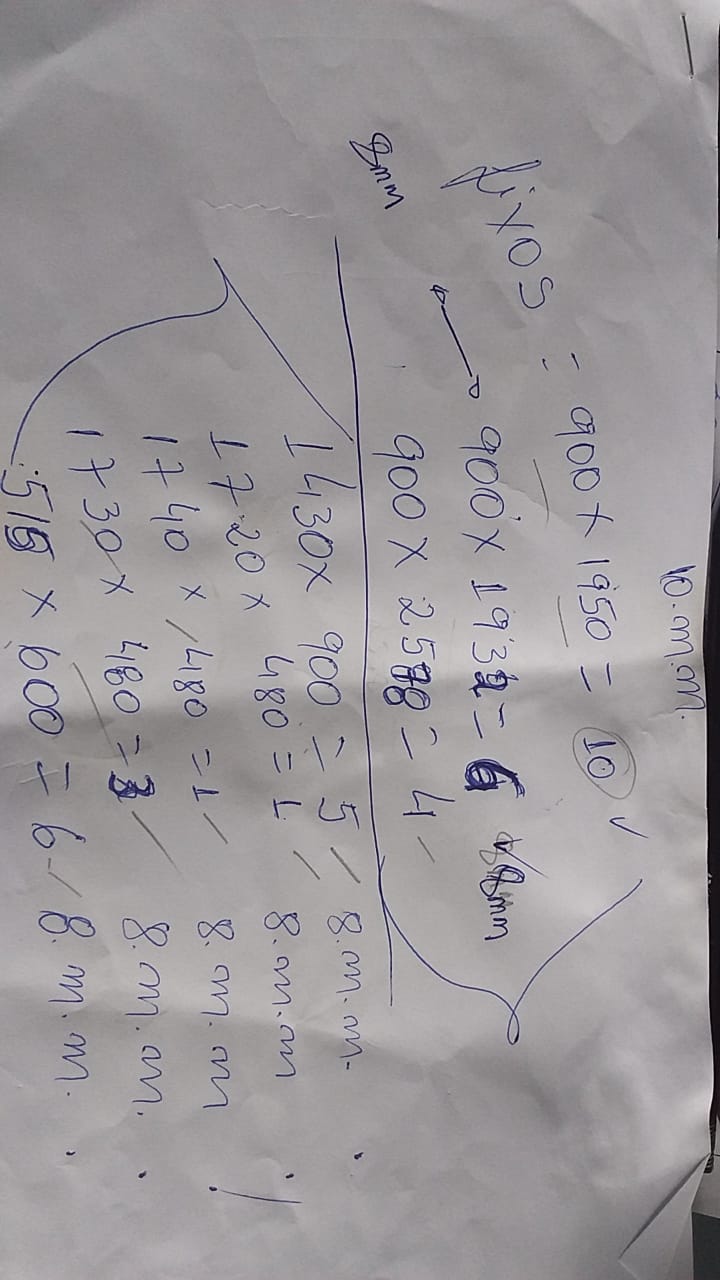 10.m.m.
fixos = 900 x 1950 = 10
900 x 1932 = 6 8mm
8mm 900 x 2578 = 4
1430 x 900 = 5 8.m.m.
1720 x 480 = 1 8.m.m
1740 x 480 = 1 8.m.m
1730 x 480 = 3 8.m.m.
515 x 600 = 6 8.m.m.